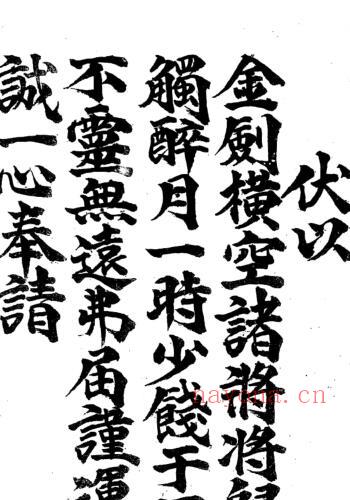 伏以
金劍橫空諸將將
觸醉月一時少餞于
不靈無遠弗届謹運
誠一心奉請
nayuna.cn